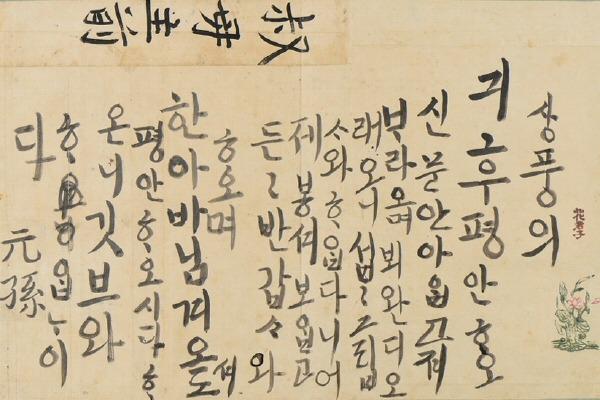 叔母主前
상풍의
긔후평안ᄒᆞ오
신문안아ᄋᆞᆸ고져
ᄇᆞ라오며뵈완디오
래오니섭〻그립
ᄉᆞ와ᄒᆞᄋᆞᆸ다니어
제봉셔보ᄋᆞᆸ고
든〻반갑ᄉᆞ와
ᄒᆞ오며
한아바님겨오셔도
평안ᄒᆞ오시다ᄒᆞ
온니깃브와
ᄒᆞᄋᆞᆸᄂᆞ이
다 元孫
花君子